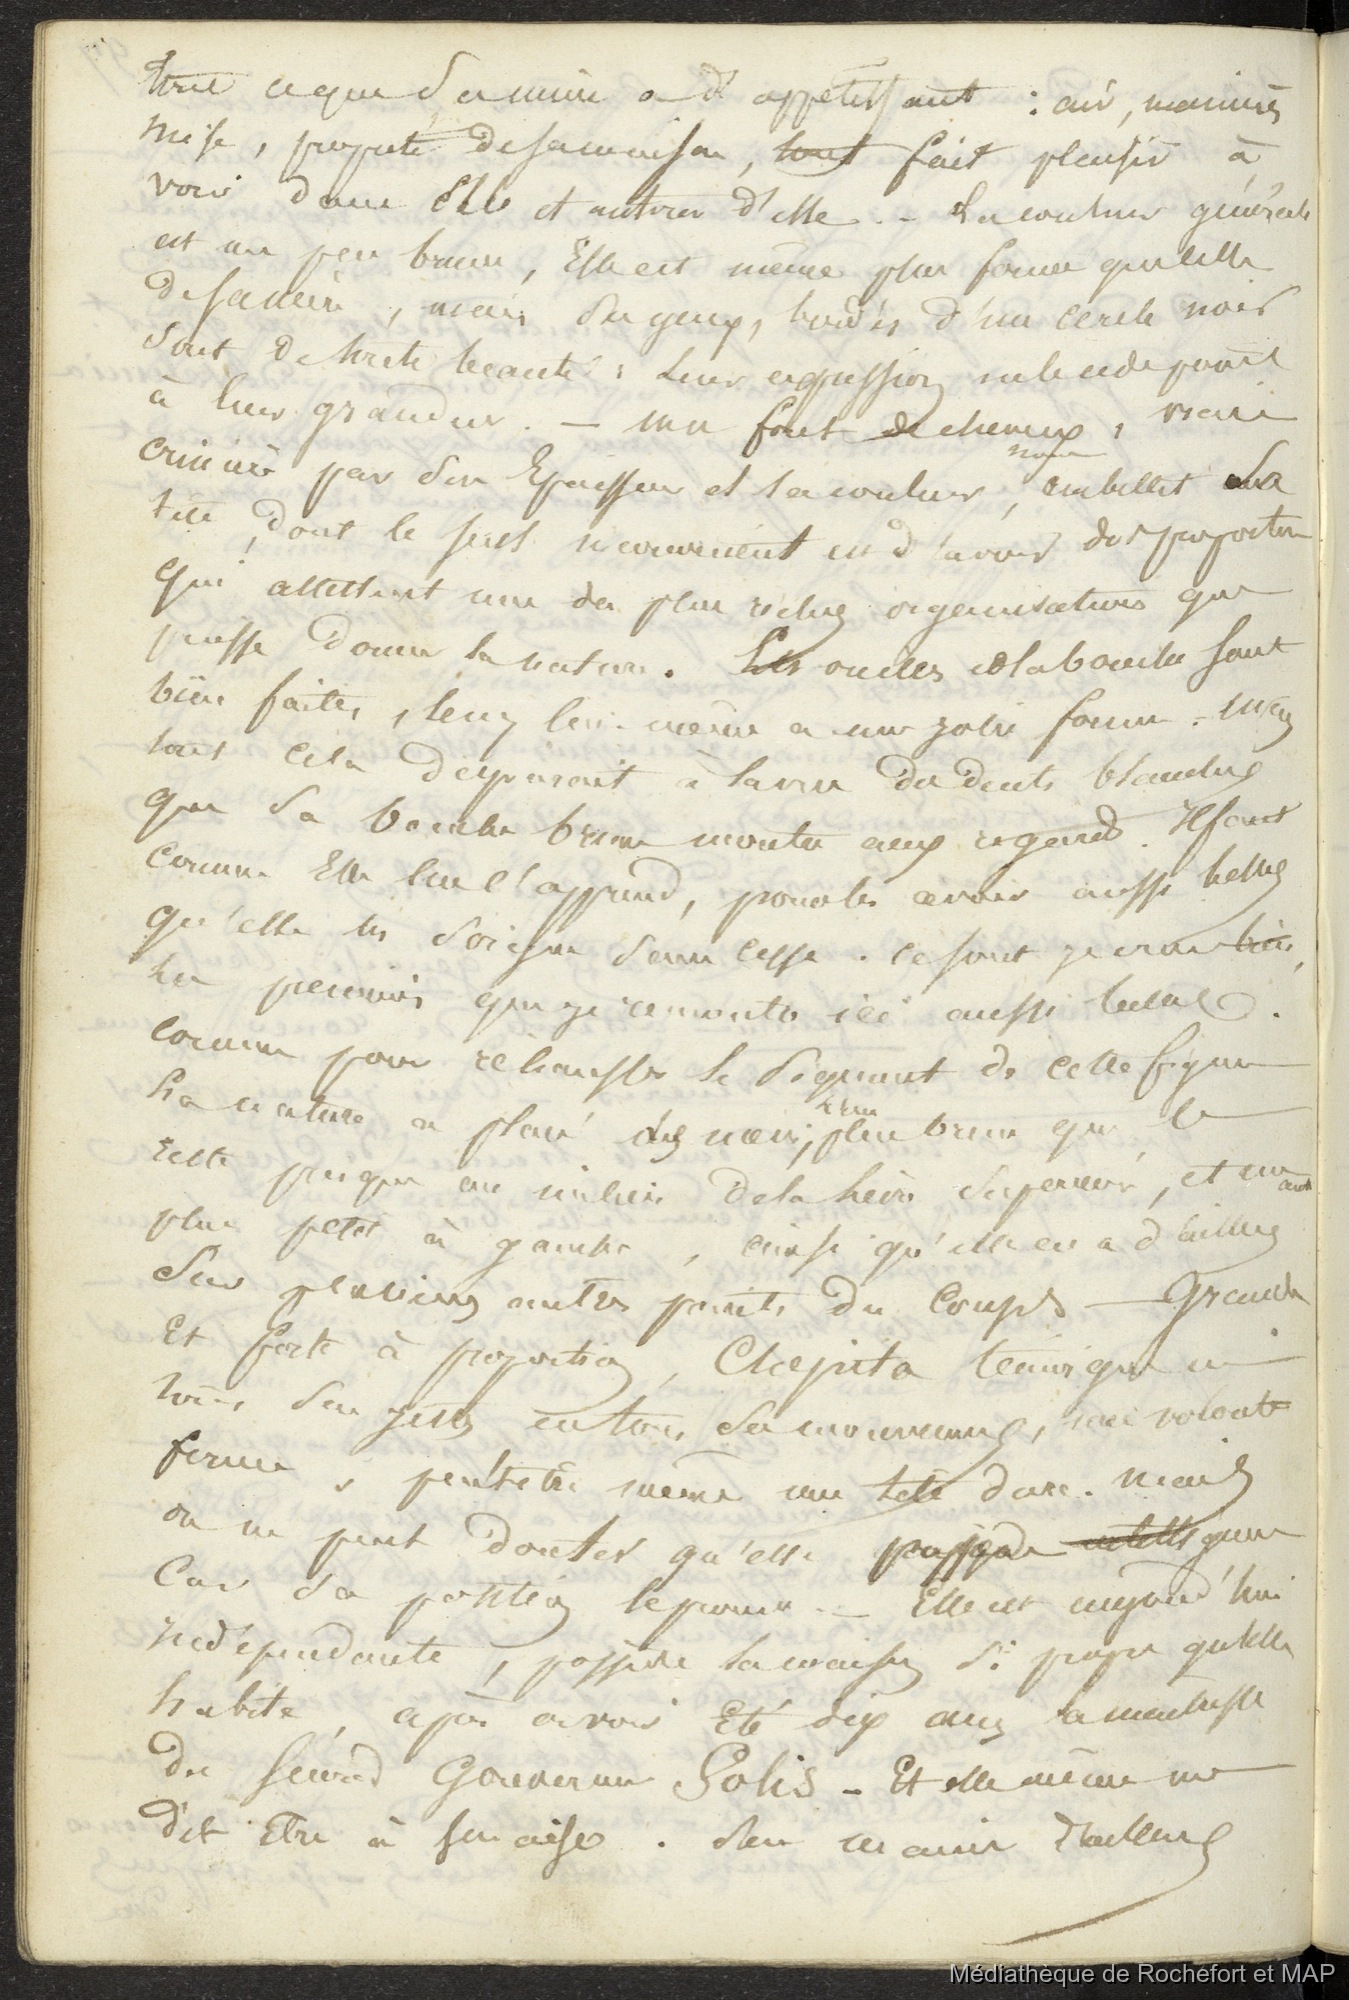 tout ce que sa mère a d'appétissant : air, manières
mise, propreté de sa maison, tout fait plaisir à
voir dans Elle et autour d'elle. - La couleur générale
est un peu brune, Elle est même plus foncée que celle
de sa mère, mais ses yeux, bordés d'un cercle noir
sont de toute beauté : leur expression
à leur grandeur. — une forêt de cheveux, vraie
crinière par son Epaisseur et sa couleur noire, embellit sa
tête, dont le seul inconvénient est d'avoir des proportions
qui attestent une des plus riches organisations que
puisse donner la nature. Les oreilles et la bouche sont
bien faites, le nez lui-même a une jolie forme. Mais
tout cela disparait à la vue des dents blanches
que sa bouche brune montre aux regards. Il faut
comme Elle l'apprend, pour les avoir aussi belles
qu'elle les soigne sans cesse. Ce sont je crois bien,
les premières que je rencontre ici aussi belles.
comme pour réhausser le piquant de cette figure
la nature a placé des noeuvi, l'un plus brun que le
reste presque au milieu de la lèvre supérieure, et un autre
plus petit à gauche, ainsi qu'elle en a d'ailleurs
sur plusieurs autres points du corps — Grande
Et forte à proportion, Chepita témoigne en
tous ses gestes, en tous ses mouvemens, une volonté
ferme, peutêtre même une tête dure. Mais
on ne peut douter qu'elle possède intelligence
Car sa position le prouve. — Elle est aujourd'hui
indépendante, possède la maison si propre qu'elle
habite, après avoir Eté dix ans la maitresse
du Second Gouverneur Solis - Et elle même me
dit Etre à son aise. d'ailleurs
Médiathèque de Rochefort et MAP